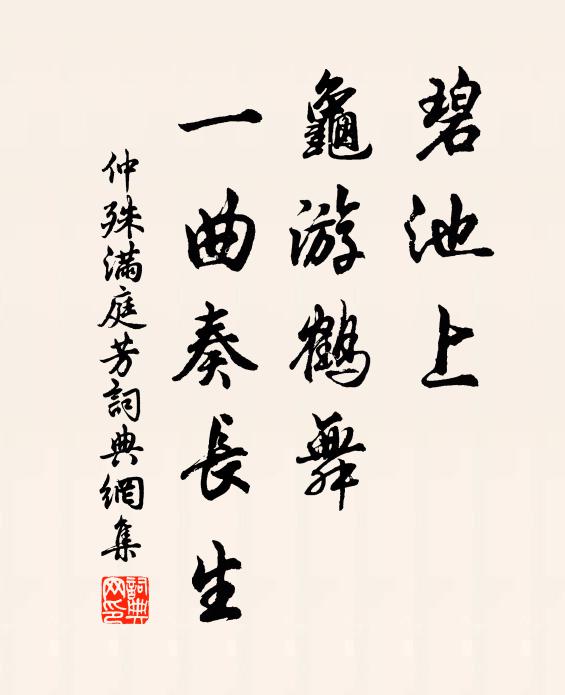 碧池上
龜游鶴舞
一曲奏長生
仲殊滿庭芳詞典網集
詞典网印